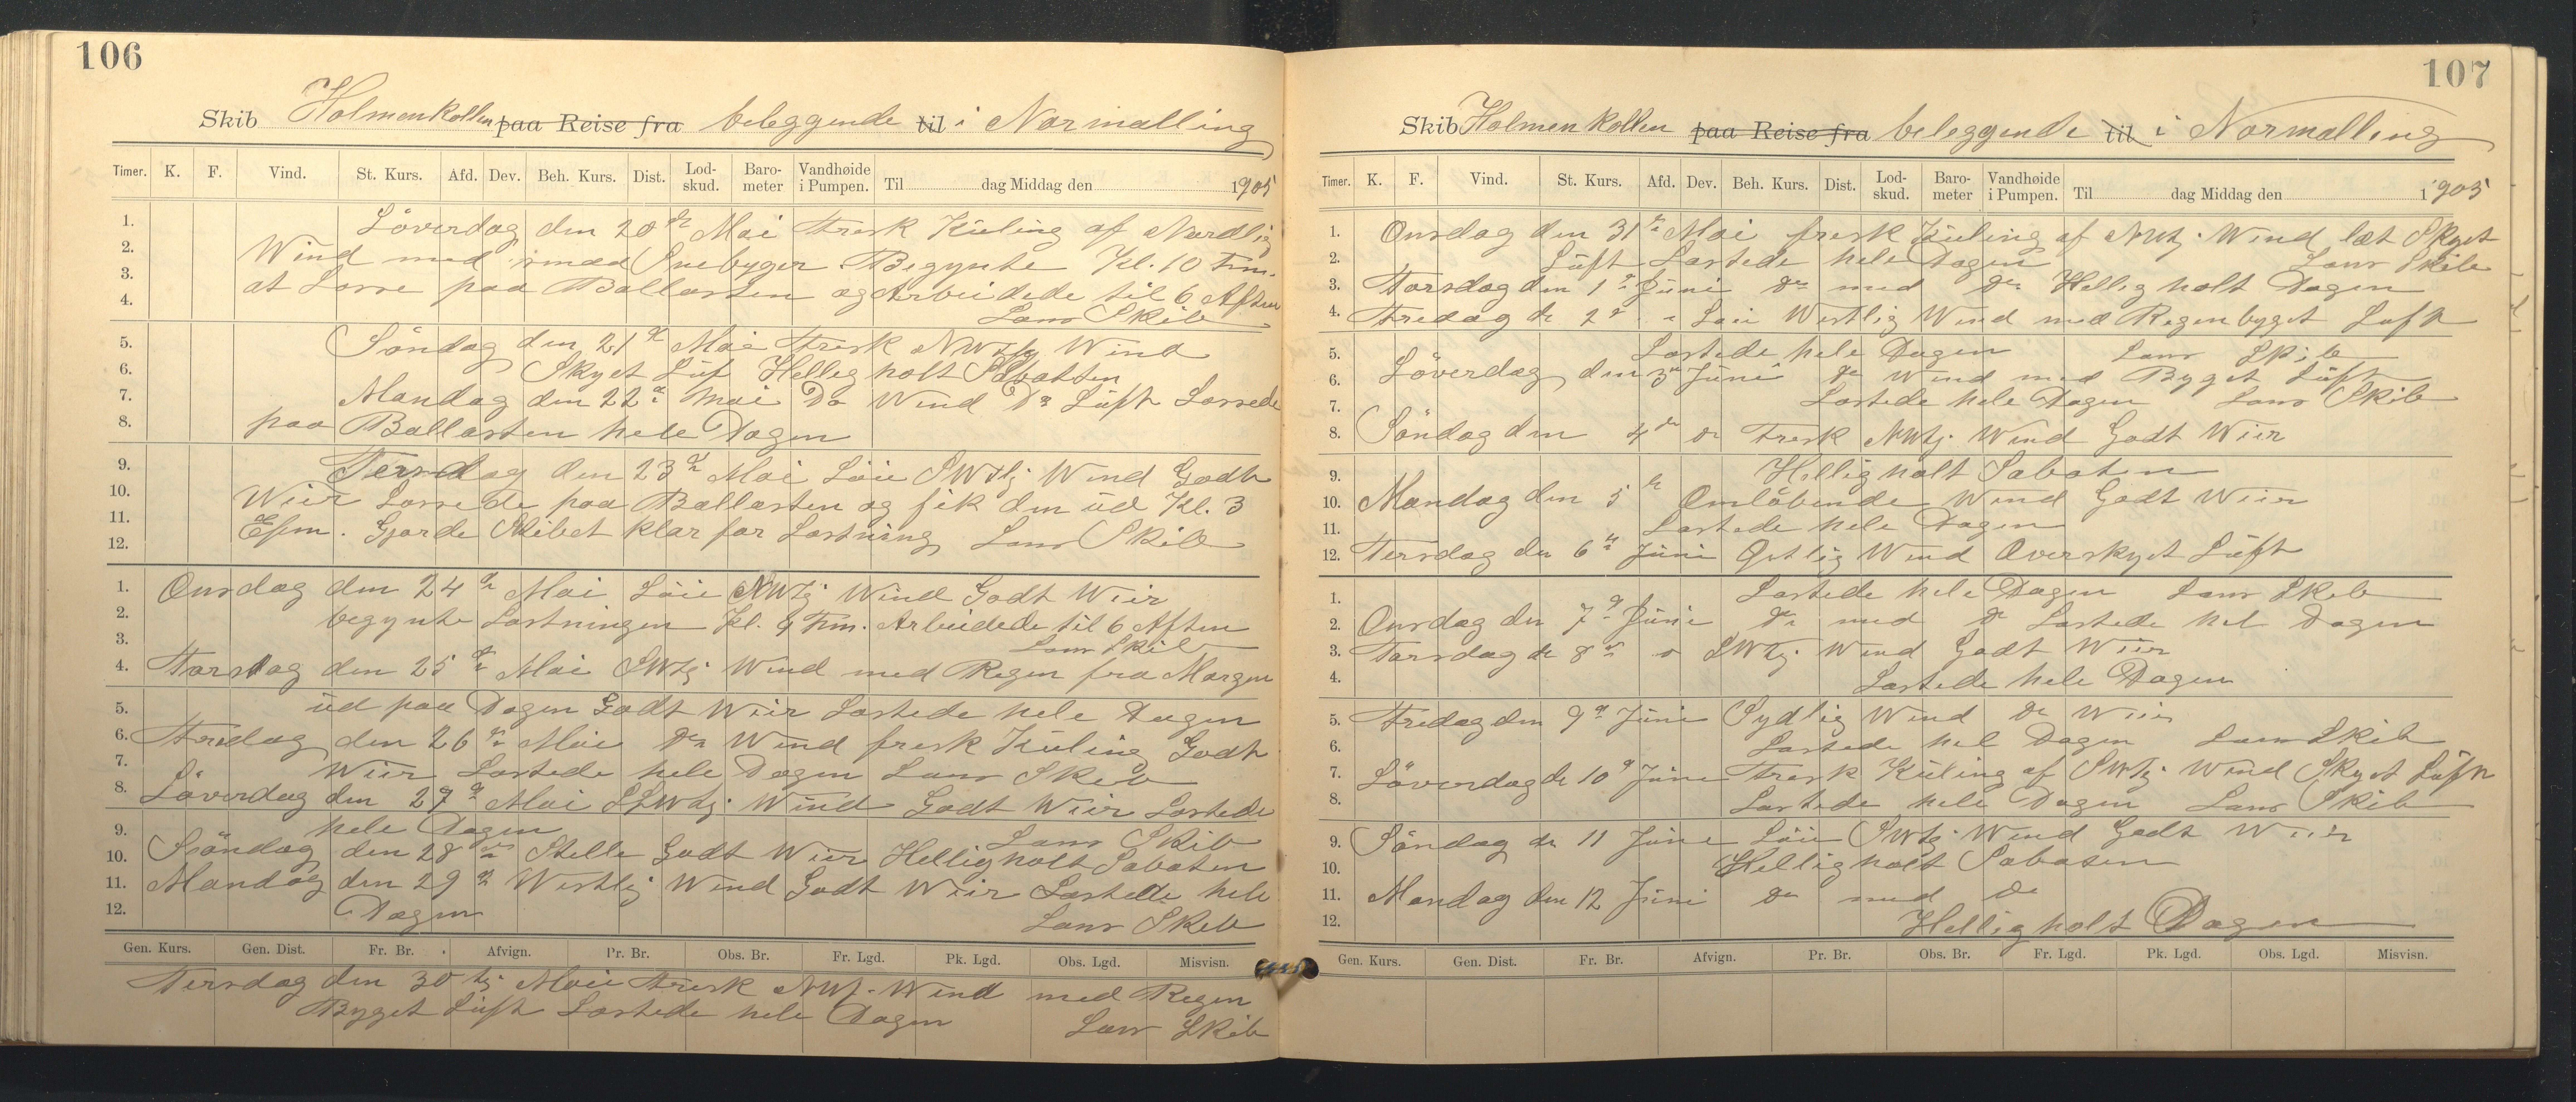 106
Skib Holmenkollen paa Reise fra beleggende til i Normalling
Timer. K. F. Vind. St. Kurs. Afd. Dev. Beh. Kurs. Dist. Lod-skud. Baro-meter Vandhøide i Pumpen. Til dag Middag den 1905
1. Löverdag den 20de Mai Fresk Küling af Nordlig
2. Wind med smaa Snebyger. Begynte Kl. 10 Fm.
3. at Losse paa Ballasten og Arbeidede til 6 Aften
4. Lens Skib
5. Söndag den 21de Mai Fresk NWtlg Wind
6. Skyet Luft Hellig holt Sabatten
7. Mandag den 22de Mai Do Wind Do Lüft Lossede
8. paa Ballasten hele Dagen
9. Tersdag den 23de Mai Löie SWtlg Wind Godt
10. Weir Lossede paa Ballasten og fik den üd Kl. 3
11. Efm. Gjorde Skibet klar for Lastning Lens Skib
12.
1. Onsdag den 24de Mai Löie NWtlg Wind Godt Weir
2. begynte Lastningen Kl. 9 Fm. Arbeidede til 6 Aften
3. Lens Skib
4. Torsdag den 25de Mai SWtlg Wind med Regen fra Morgen
5. üd paa Dagen Godt Weir Lastede hele Dagen
6. Fredag den 26de Mai Do Wind fresk Küling Godt
7. Weir Lastede hele Dagen Lens Skib
8. Löverdag den 27de Mai SSWtlg Wind Godt Weir Lastede
9. hele Dagen Lens Skib
10. Söndag den 28de Stelle Godt Weir Hellig holt Sabaten
11. Mandag den 29de Westlig Wind Godt Weir Lastede hele
12. Dagen Lens Skib
Gen. Kurs. Gen. Dist. Fr. Br. Afvign. Pr. Br. Obs. Br. Fr. Lgd. Pk. Lgd. Obs. Lgd. Misvisn.
Tersdag den 30 Mai Fresk NWtlg Wind med Regen
Byget Lüft Lastede hele Dagen Lens Skib
107
Skib Holmenkollen paa Reise fra beleggende til i Normalling
Timer. K. F. Vind. St. Kurs. Afd. Dev. Beh. Kurs. Dist. Lod-skud. Baro-meter Vandhøide i Pumpen. Til dag Middag den 1905
1. Onsdag den 31te Mai fresk Küling af NWtlg Wind læt Skyet
2. Lüft Lastede hele Dagen Lens Skib
3. Torsdag den 1ste Jüni Do med Do Hellig holt Dagen
4. Fredag de 2de Löie Westlig Wind med Regenbyget Luft
5. Lastede hele Dagen Lens Skib
6. Löverdag den 3de Jüni Do Wind med Byget Lüft
7. Lastede hele Dagen Lens Skib
8. Söndag den 4de Do Fresk NWtlg Wind Godt Weir
9. Hellig holt Sabaten
10. Mandag den 5te Omlöbende Wind Godt Weir
11. Lastede hele Dagen
12. Tersdag den 6te Jüni Ostlig Wind Overskyet Lüft
1. Lastede hele Dagen Lens Skib
2. Onsdag den 7de Jüni Do med Do Lastede hel Dagen
3. Torsdag de 8de SWtlg Wind Godt Weir
4. Lastede hele Dagen
5. Fredag den 9de Jüni Sydlig Wind Do Weir
6. Lastede hel Dagen Lens Skib
7. Löverdag de 10de Jüni Fresk Küling af SWtlg Wind Skyet Lüft
8. Lastede hele Dagen Lens Skib
9. Söndag de 11 Jüni Löie SWtlg Wind Godt Weir
10. Hellig holt Sabaten
11. Mandag den 12 Jüni Do med Do
12. Hellig holt Dagen
Gen. Kurs. Gen. Dist. Fr. Br. Afvign. Pr. Br. Obs. Br. Fr. Lgd. Pk. Lgd. Obs. Lgd. Misvisn.